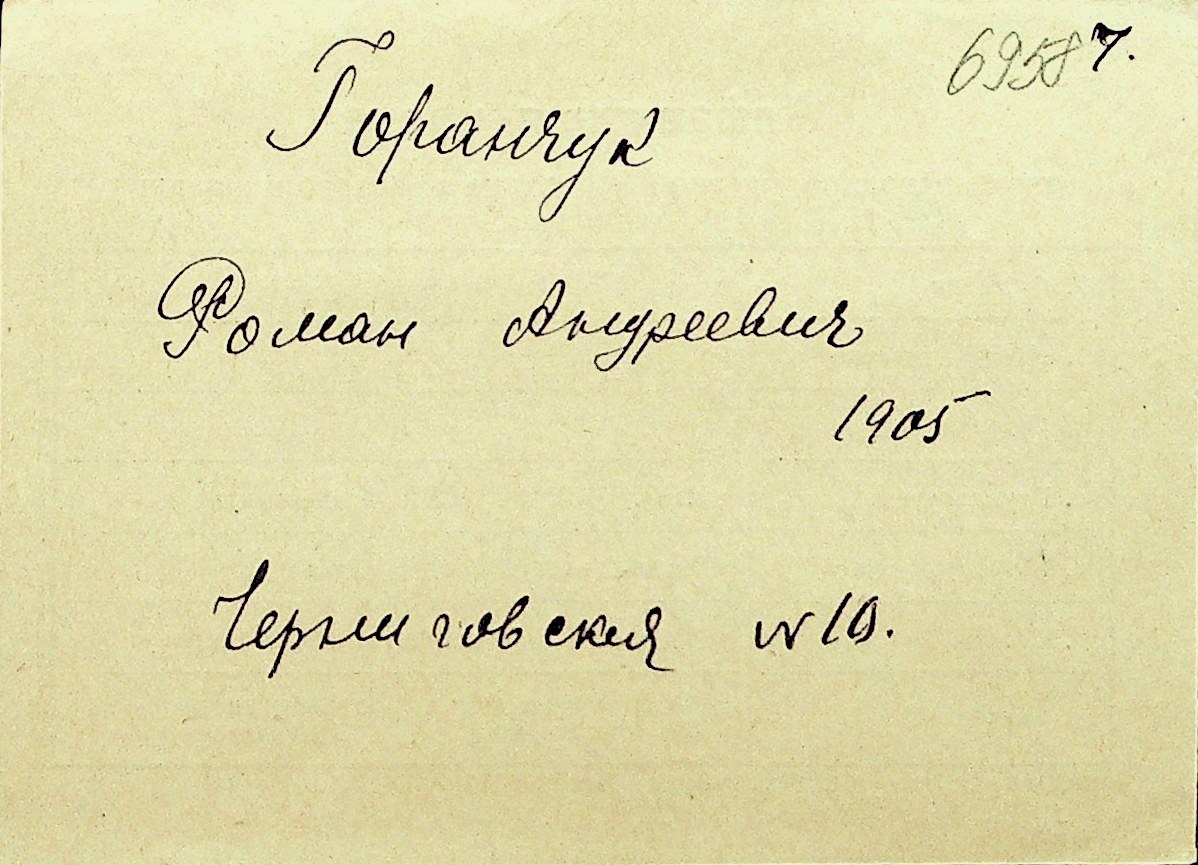 69587.
Горанчук
Роман Андреевич
1905
Черниговская № 10.